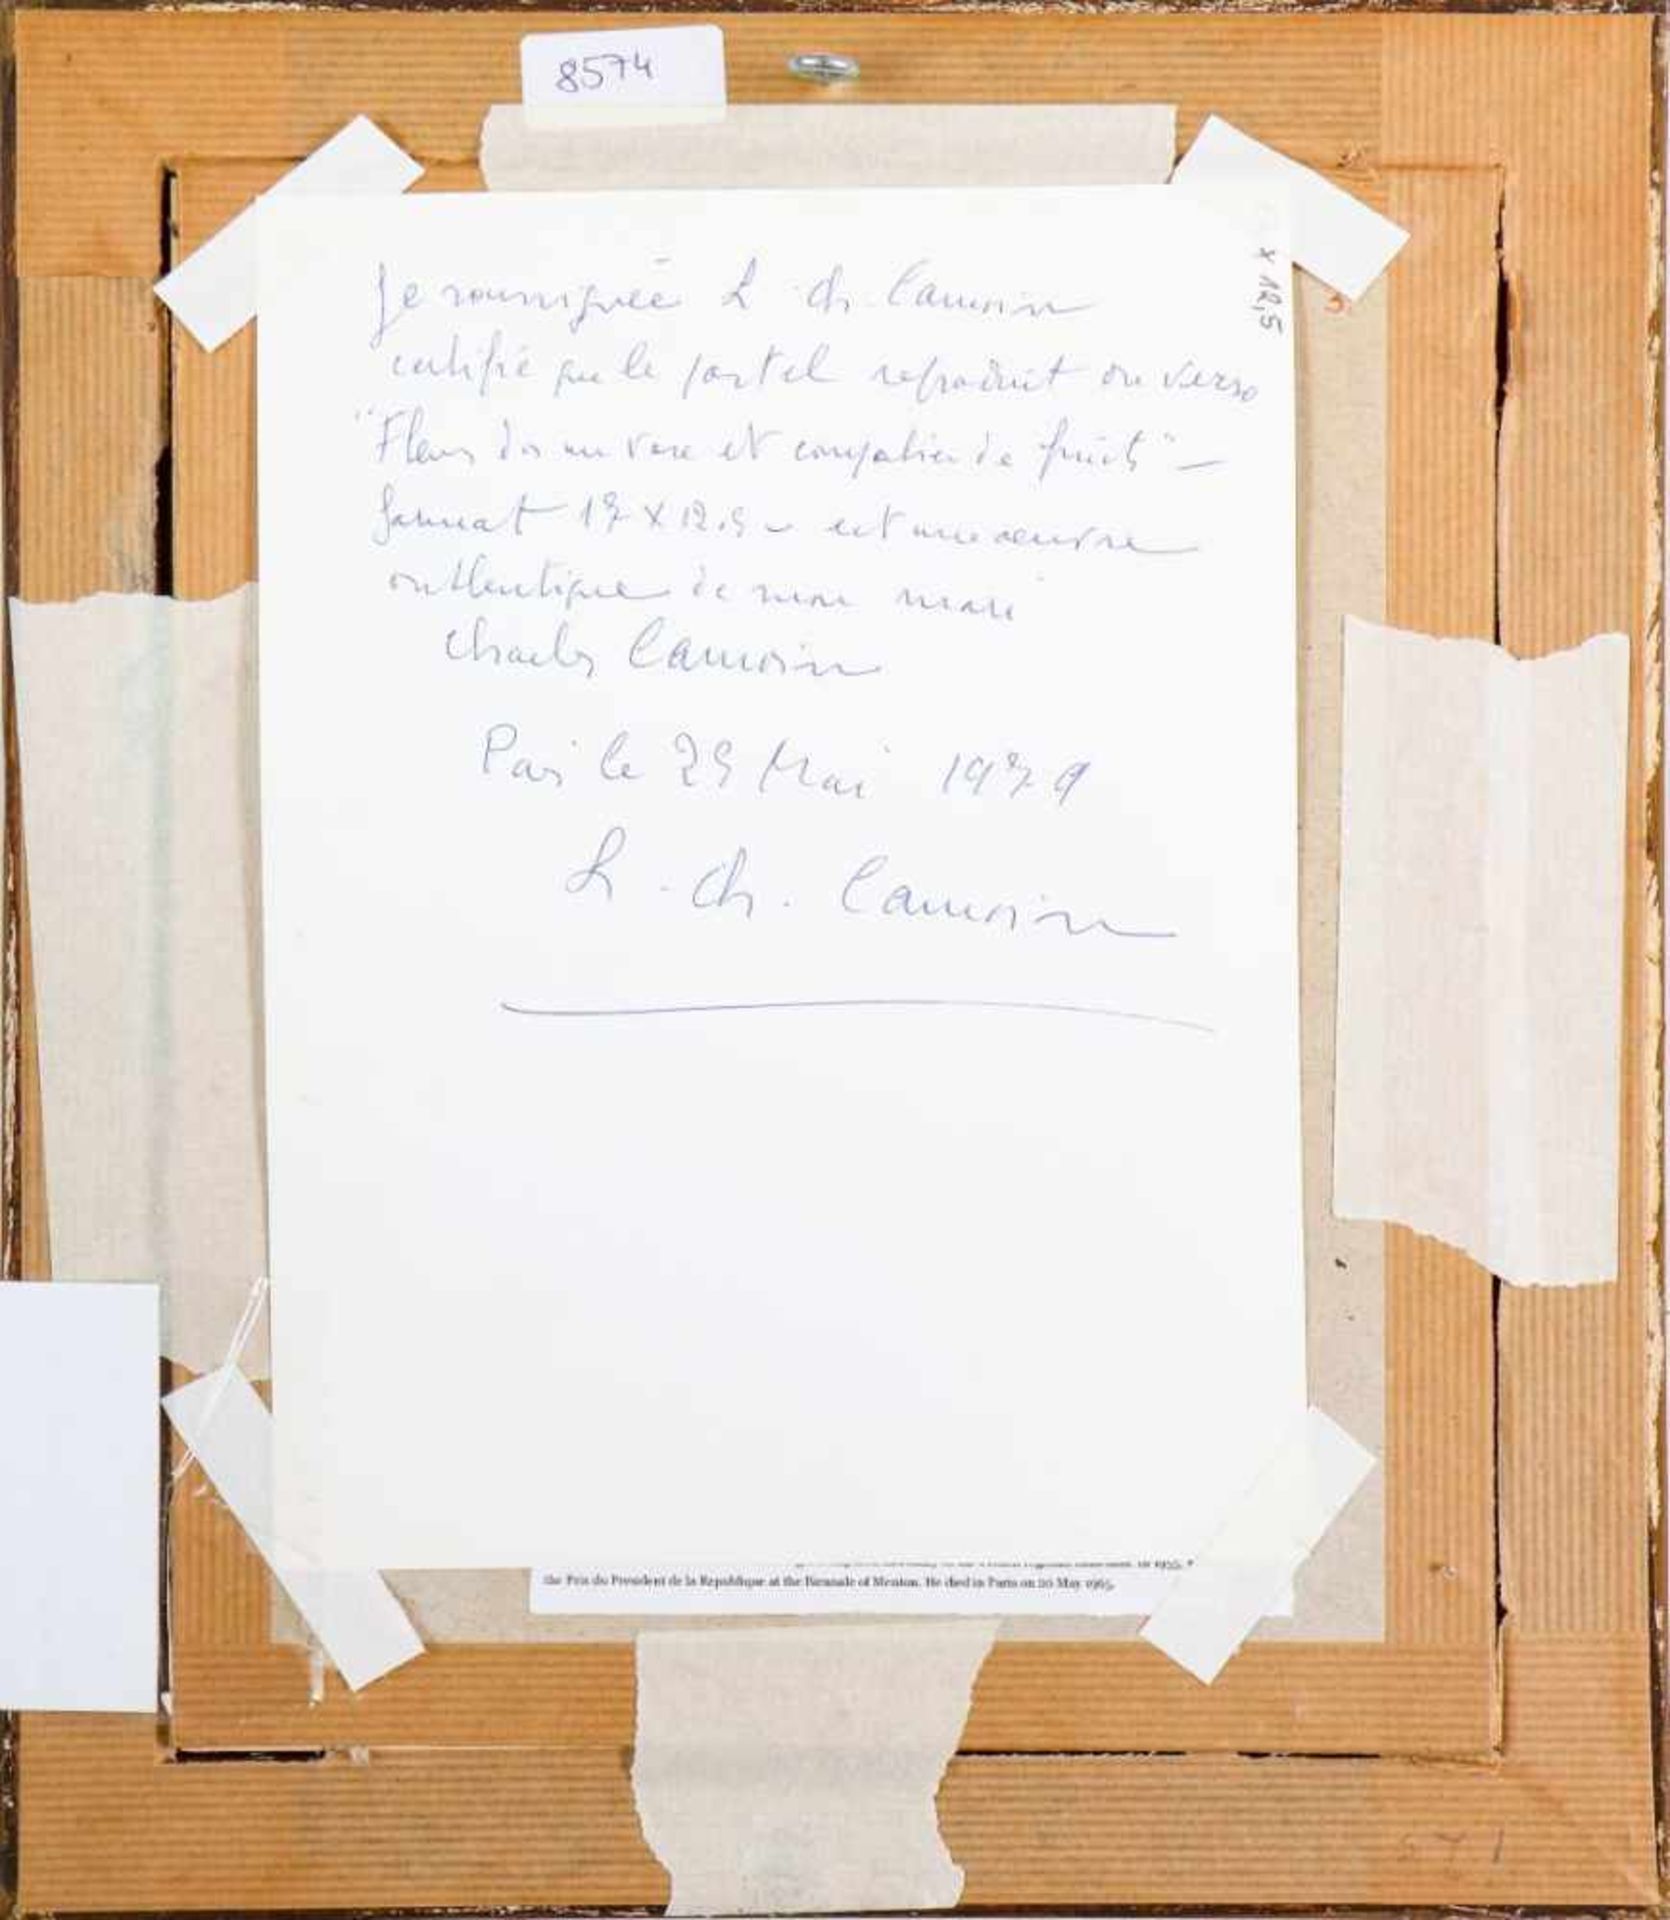 8574
x 12,5
Je soussignée L. Ch. Camoin
certifie que le pastel reproduit au verso
"Fleurs dans un vase et compotier de fruits" -
format 17 x 12.5 - est une oeuvre
authentique de mon mari
Charles Camoin
Paris le 25 Mai 1979
L. Ch. Camoin
in 1955,
the Prix du President de la Republique at the Biennale of Menton. He died in Paris on 20 May 1965.
571